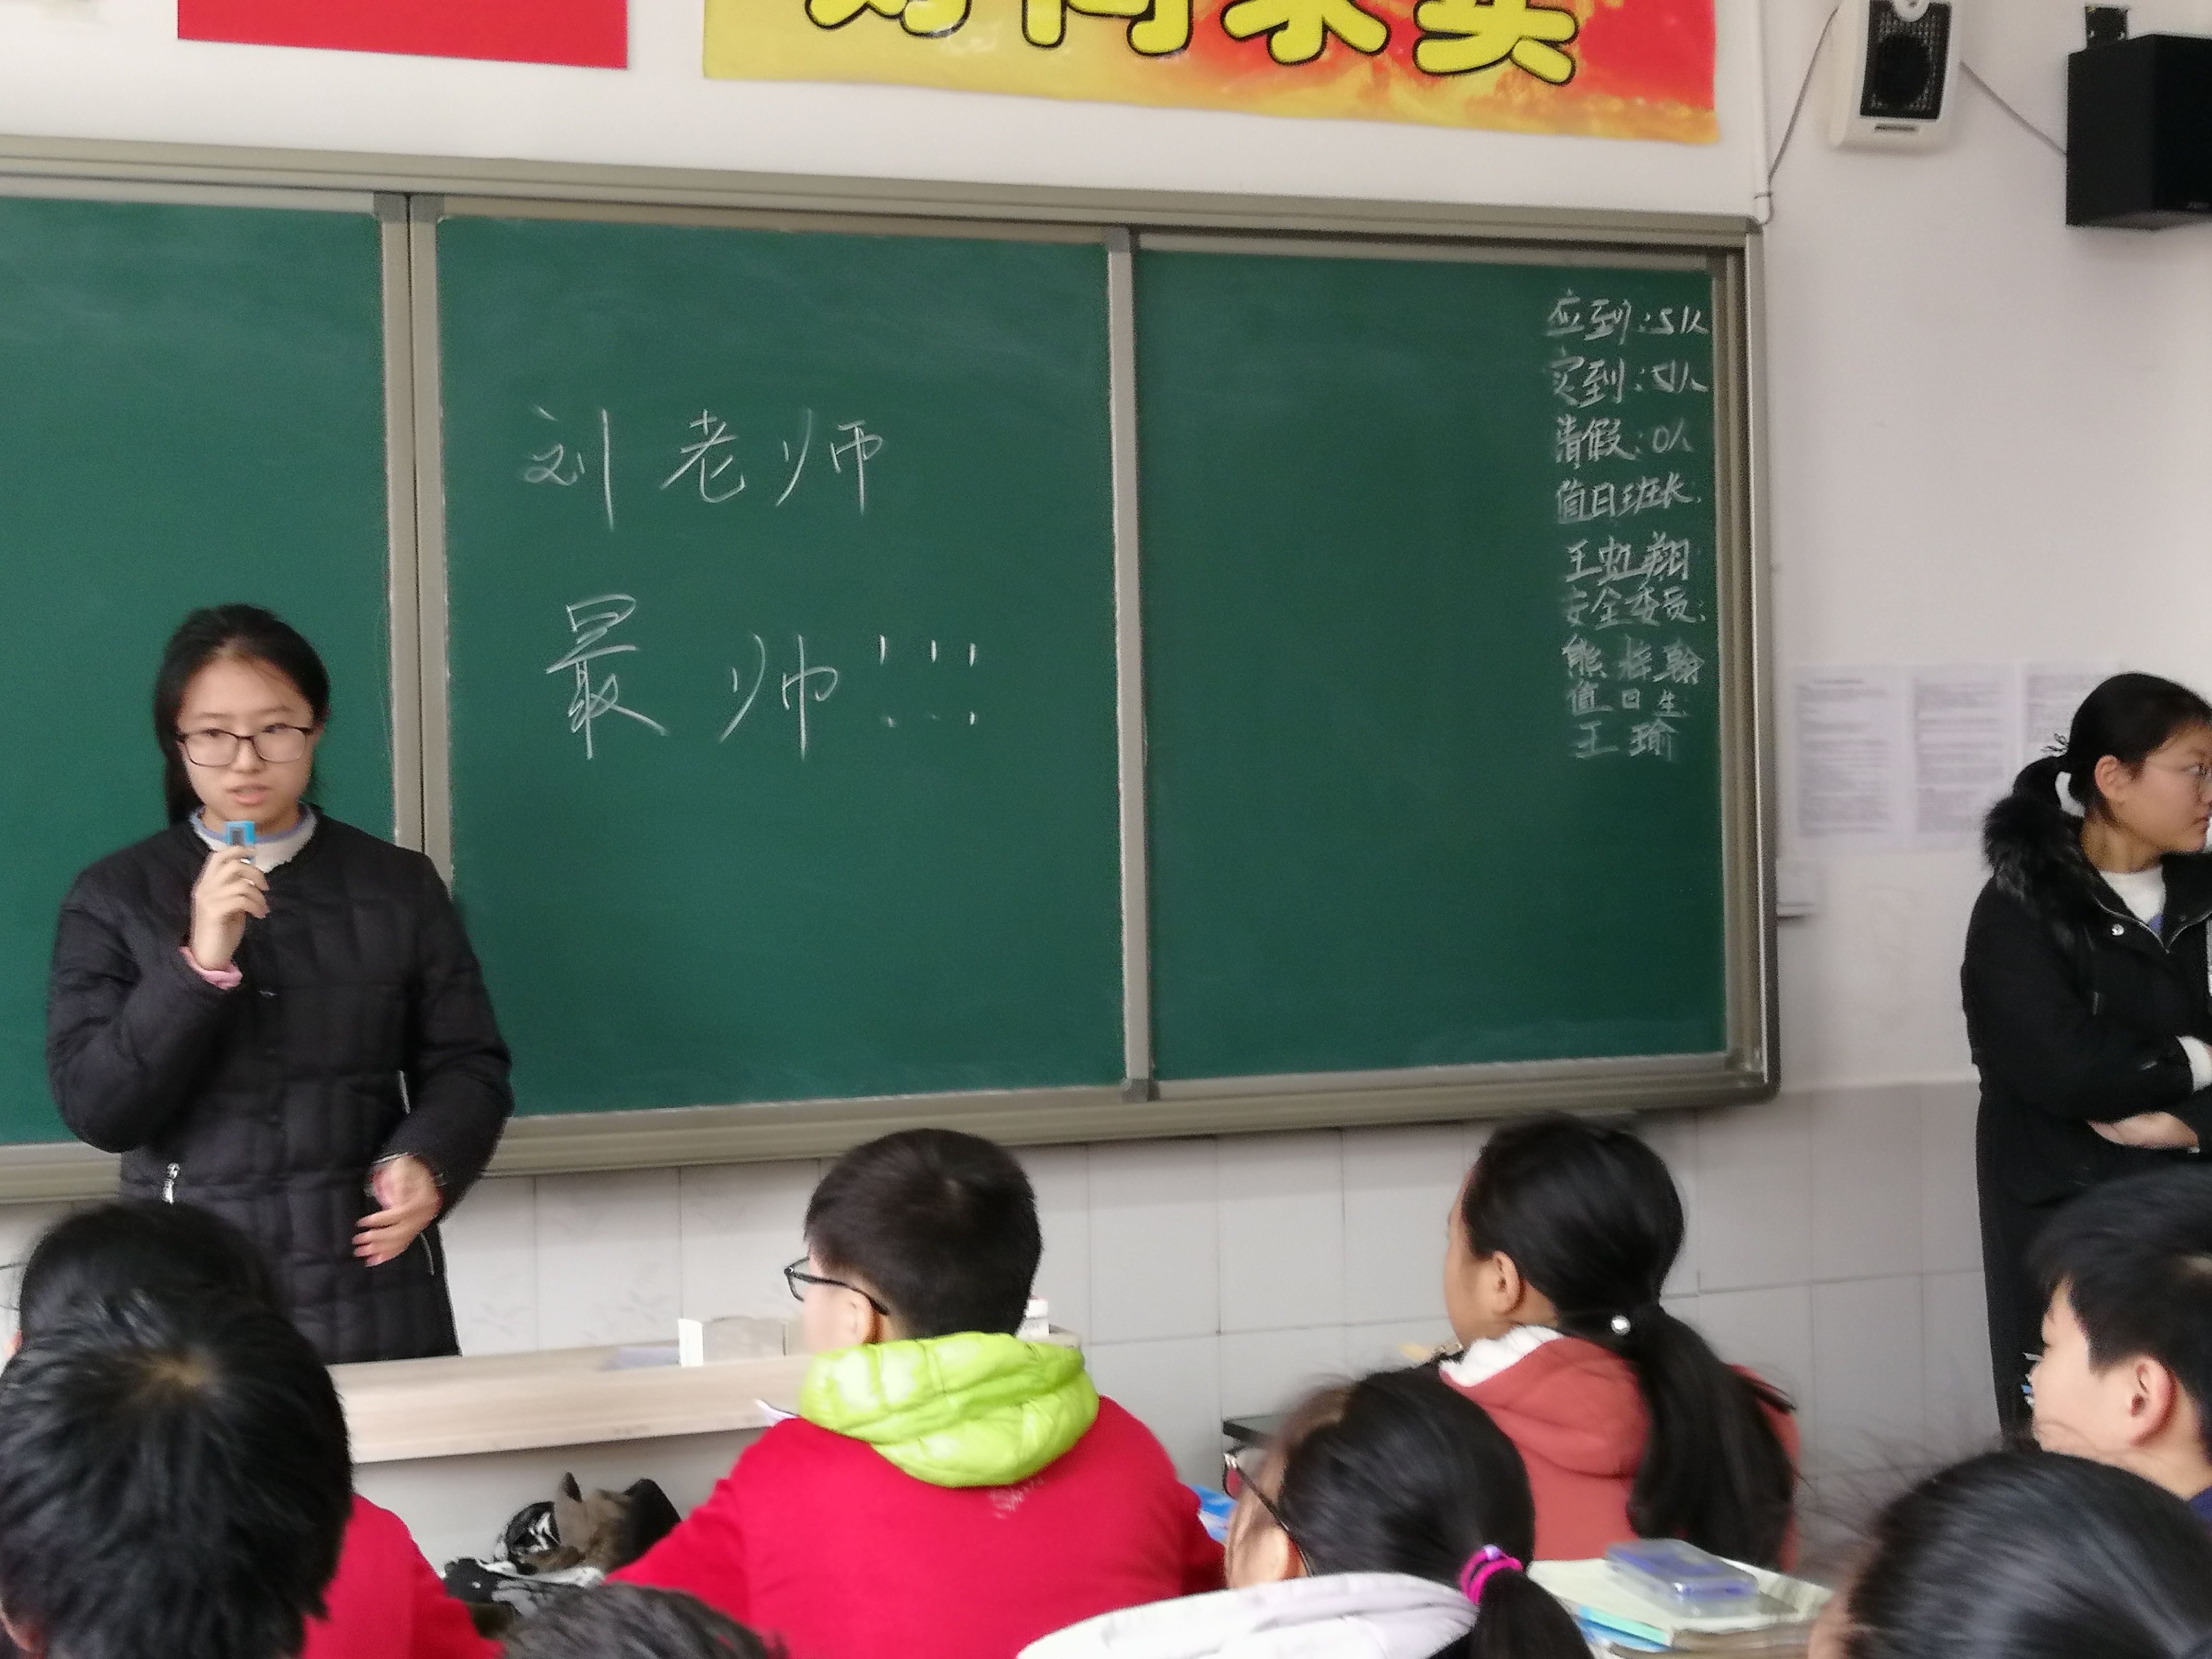 好问求实
刘老师
最帅!!!
应到:51人
实到:51人
请假:0人
值日班长:
王虹翔
安全委员:
熊梓翰
值日生:
王瑜